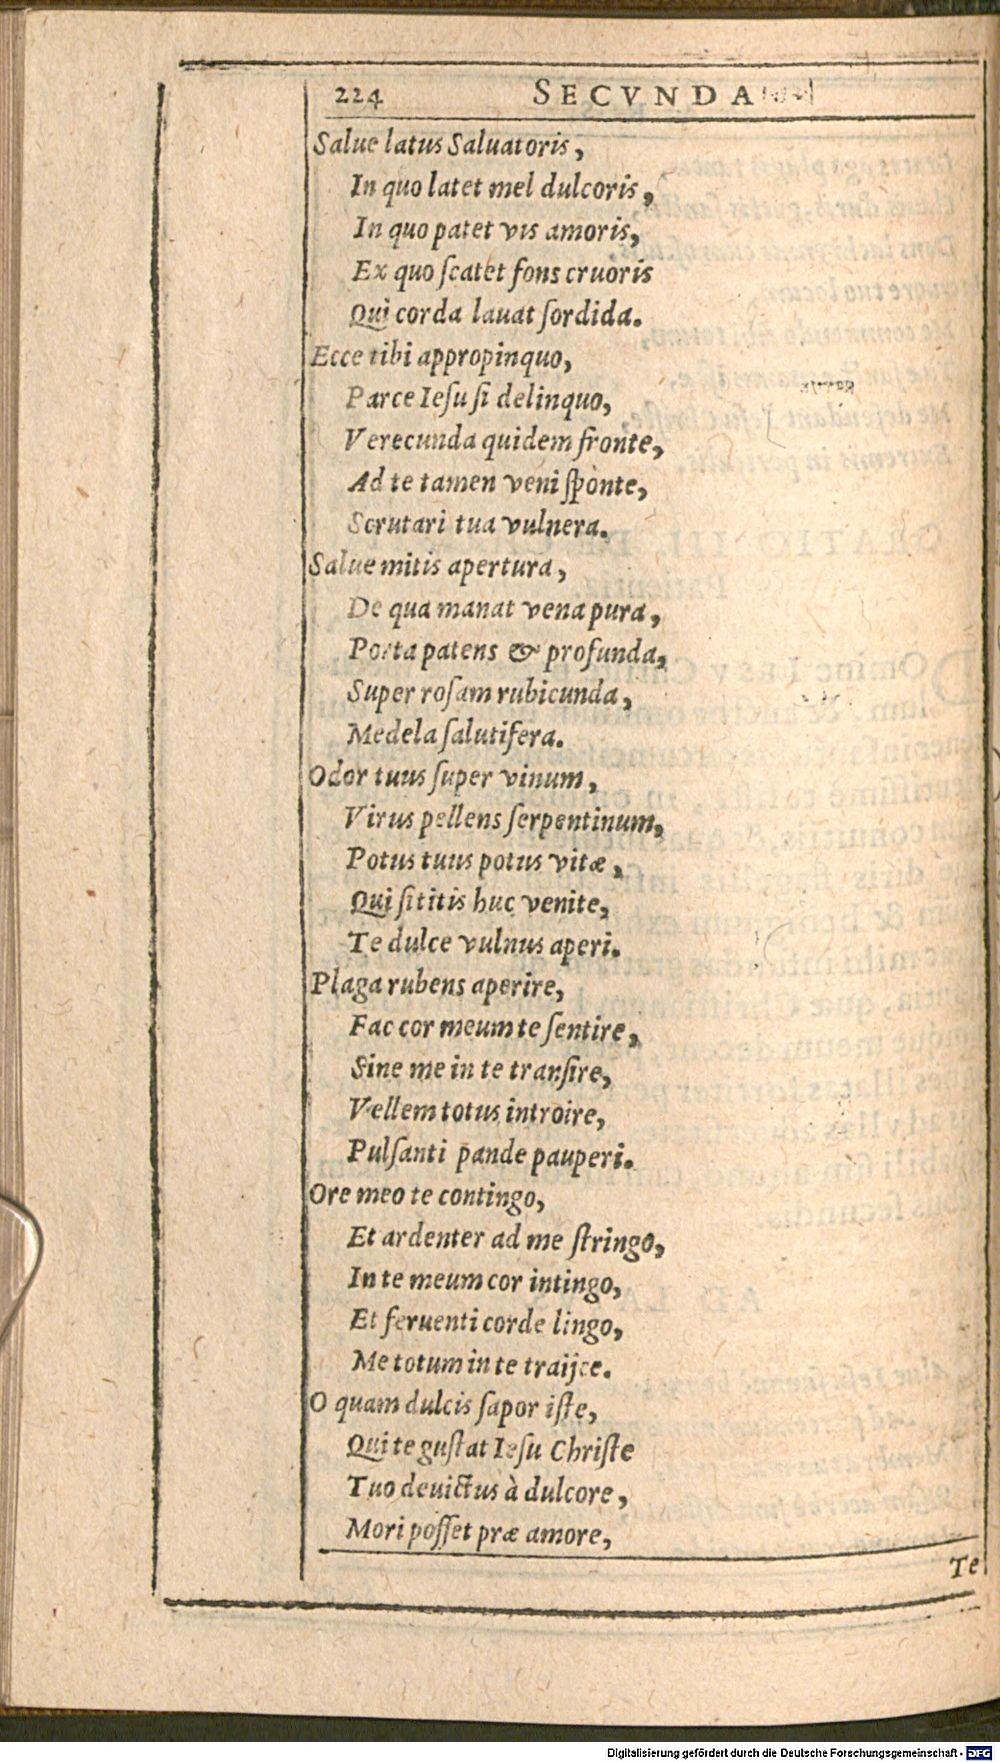 224 SECVNDA
Salue latus Saluatoris,
In quo latet mel dulcoris,
In quo patet vis amoris,
Ex quo ſcatet fons cruoris
Qui corda lauat ſordida.
Ecce tibi appropinquo,
Parce Ieſu ſi delinquo,
Verecunda quidem fronte,
Ad te tamen veni ſponte,
Scrutari tua vulnera.
Salue mitis apertura,
De qua manat vena pura,
Porta patens & profunda,
Super roſam rubicunda,
Medela ſalutifera.
Odor tuus ſuper vinum,
Virus pellens ſerpentinum,
Potus tuus potus vitæ,
Qui ſititis huc venite,
Te dulce vulnus aperi.
Plaga rubens aperire,
Fac cor meum te ſentire,
Sine me in te tranſire,
Vellem totus introire,
Pulſanti pande pauperi.
Ore meo te contingo,
Et ardenter ad me ſtringo,
In te meum cor intingo,
Et feruenti corde lingo,
Me totum in te traijce.
O quam dulcis ſapor iſte,
Qui te guſtat Ieſu Chriſte
Tuo deuictus à dulcore,
Mori poſſet præ amore,
Te
Digitalisierung gefördert durch die Deutsche Forschungsgemeinschaft - DFG